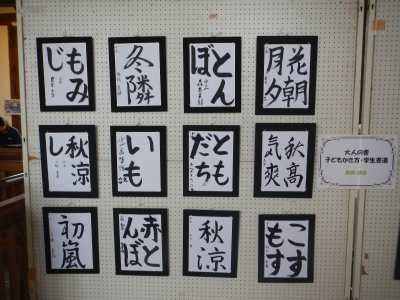 花朝
月夕
とん
ぼ
冬隣
もみ
じ
秋高
気爽
とも
だち
いも
秋涼
し
こす
もす
秋涼
赤と
んぼ
初嵐
大人の書
子どもかき方・学生書道